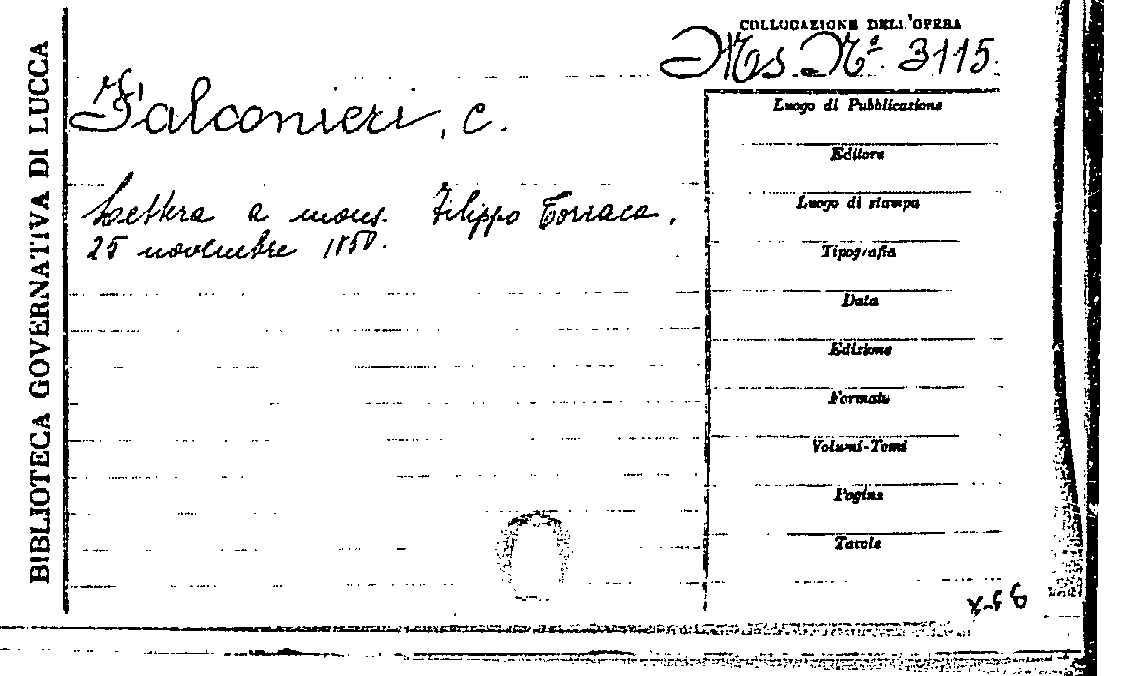 BIBLIOTECA GOVERNATIVA DI LUCCA
COLLOCAZIONE DELL'OPERA
Ms. Nº. 3115.
Falconieri, C.
Lettera a mons. Filippo Torraca,
25 novembre 1850.
Luogo di Pubblicazione
Editore
Luogo di stampa
Tipografia
Data
Edizione
Formato
Volumi-Tomi
Pagine
Tavole